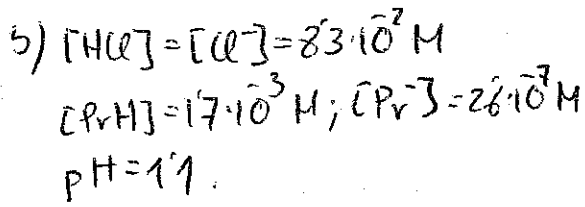 5) [HCl]=[Cl⁻]=8'3·10⁻² M
[PrH]=1'7·10⁻³ M; [Pr⁻]=2'6·10⁻⁷ M
pH=1'1.